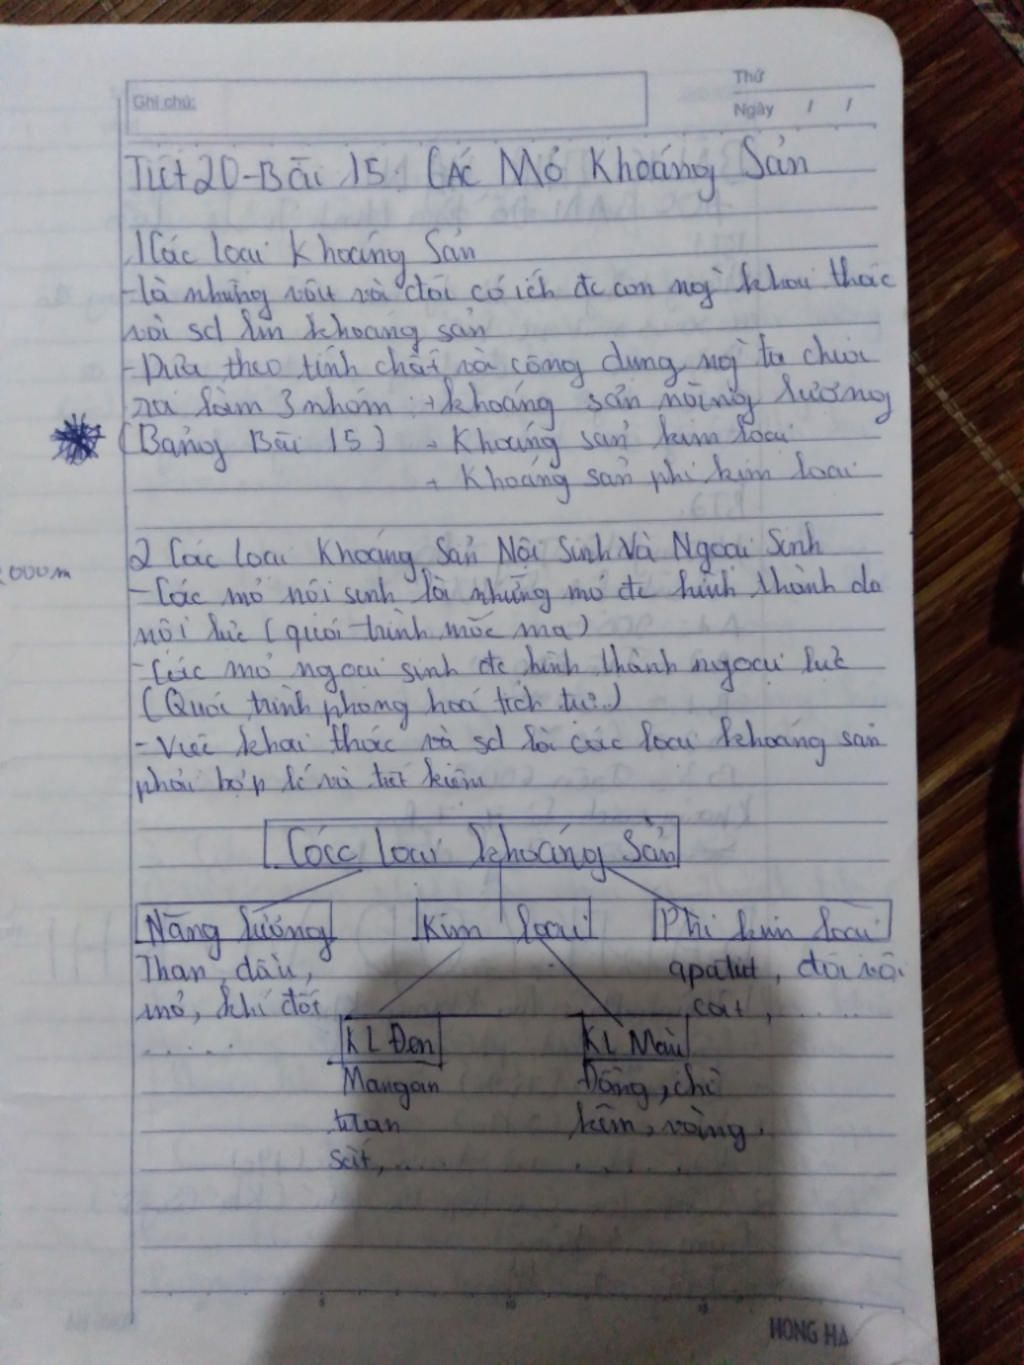 Ghi chú:
Thứ
Ngày / /
Tiết 20-Bài 15: CÁC Mỏ Khoáng Sản
1 Các loại Khoáng Sản
-là những vật và đá có ích đc con ng` khai thác
và sd làm khoáng sản
-Dựa theo tính chất và công dụng ng` ta chia
ra làm 3 nhóm : + khoáng sản năng lượng
(Bảng Bài 15) + Khoáng sản kim loại
+ Khoáng sản phi kim loại
2 Các loại Khoáng Sản Nội Sinh Và Ngoại Sinh
000m
-Các mỏ nội sinh là những mỏ đc hình thành do
nội lực (quá trình mắc ma)
-Các mỏ ngoại sinh đc hình thành ngoại lực
(Quá trình phong hoá tích tụ..)
-Việc khai thác và sd là các loại khoáng sản
phải hợp lí và tiết kiệm
Các loại khoáng Sản
Năng lượng Kim loại Phi kim loại
Than, dầu, apatit, đá vôi
mỏ, khí đốt cát, .....
.....
KL Đen KL Màu
Mangan Đồng, chì
titan kẽm, vàng.
sắt, ...
HONG HA